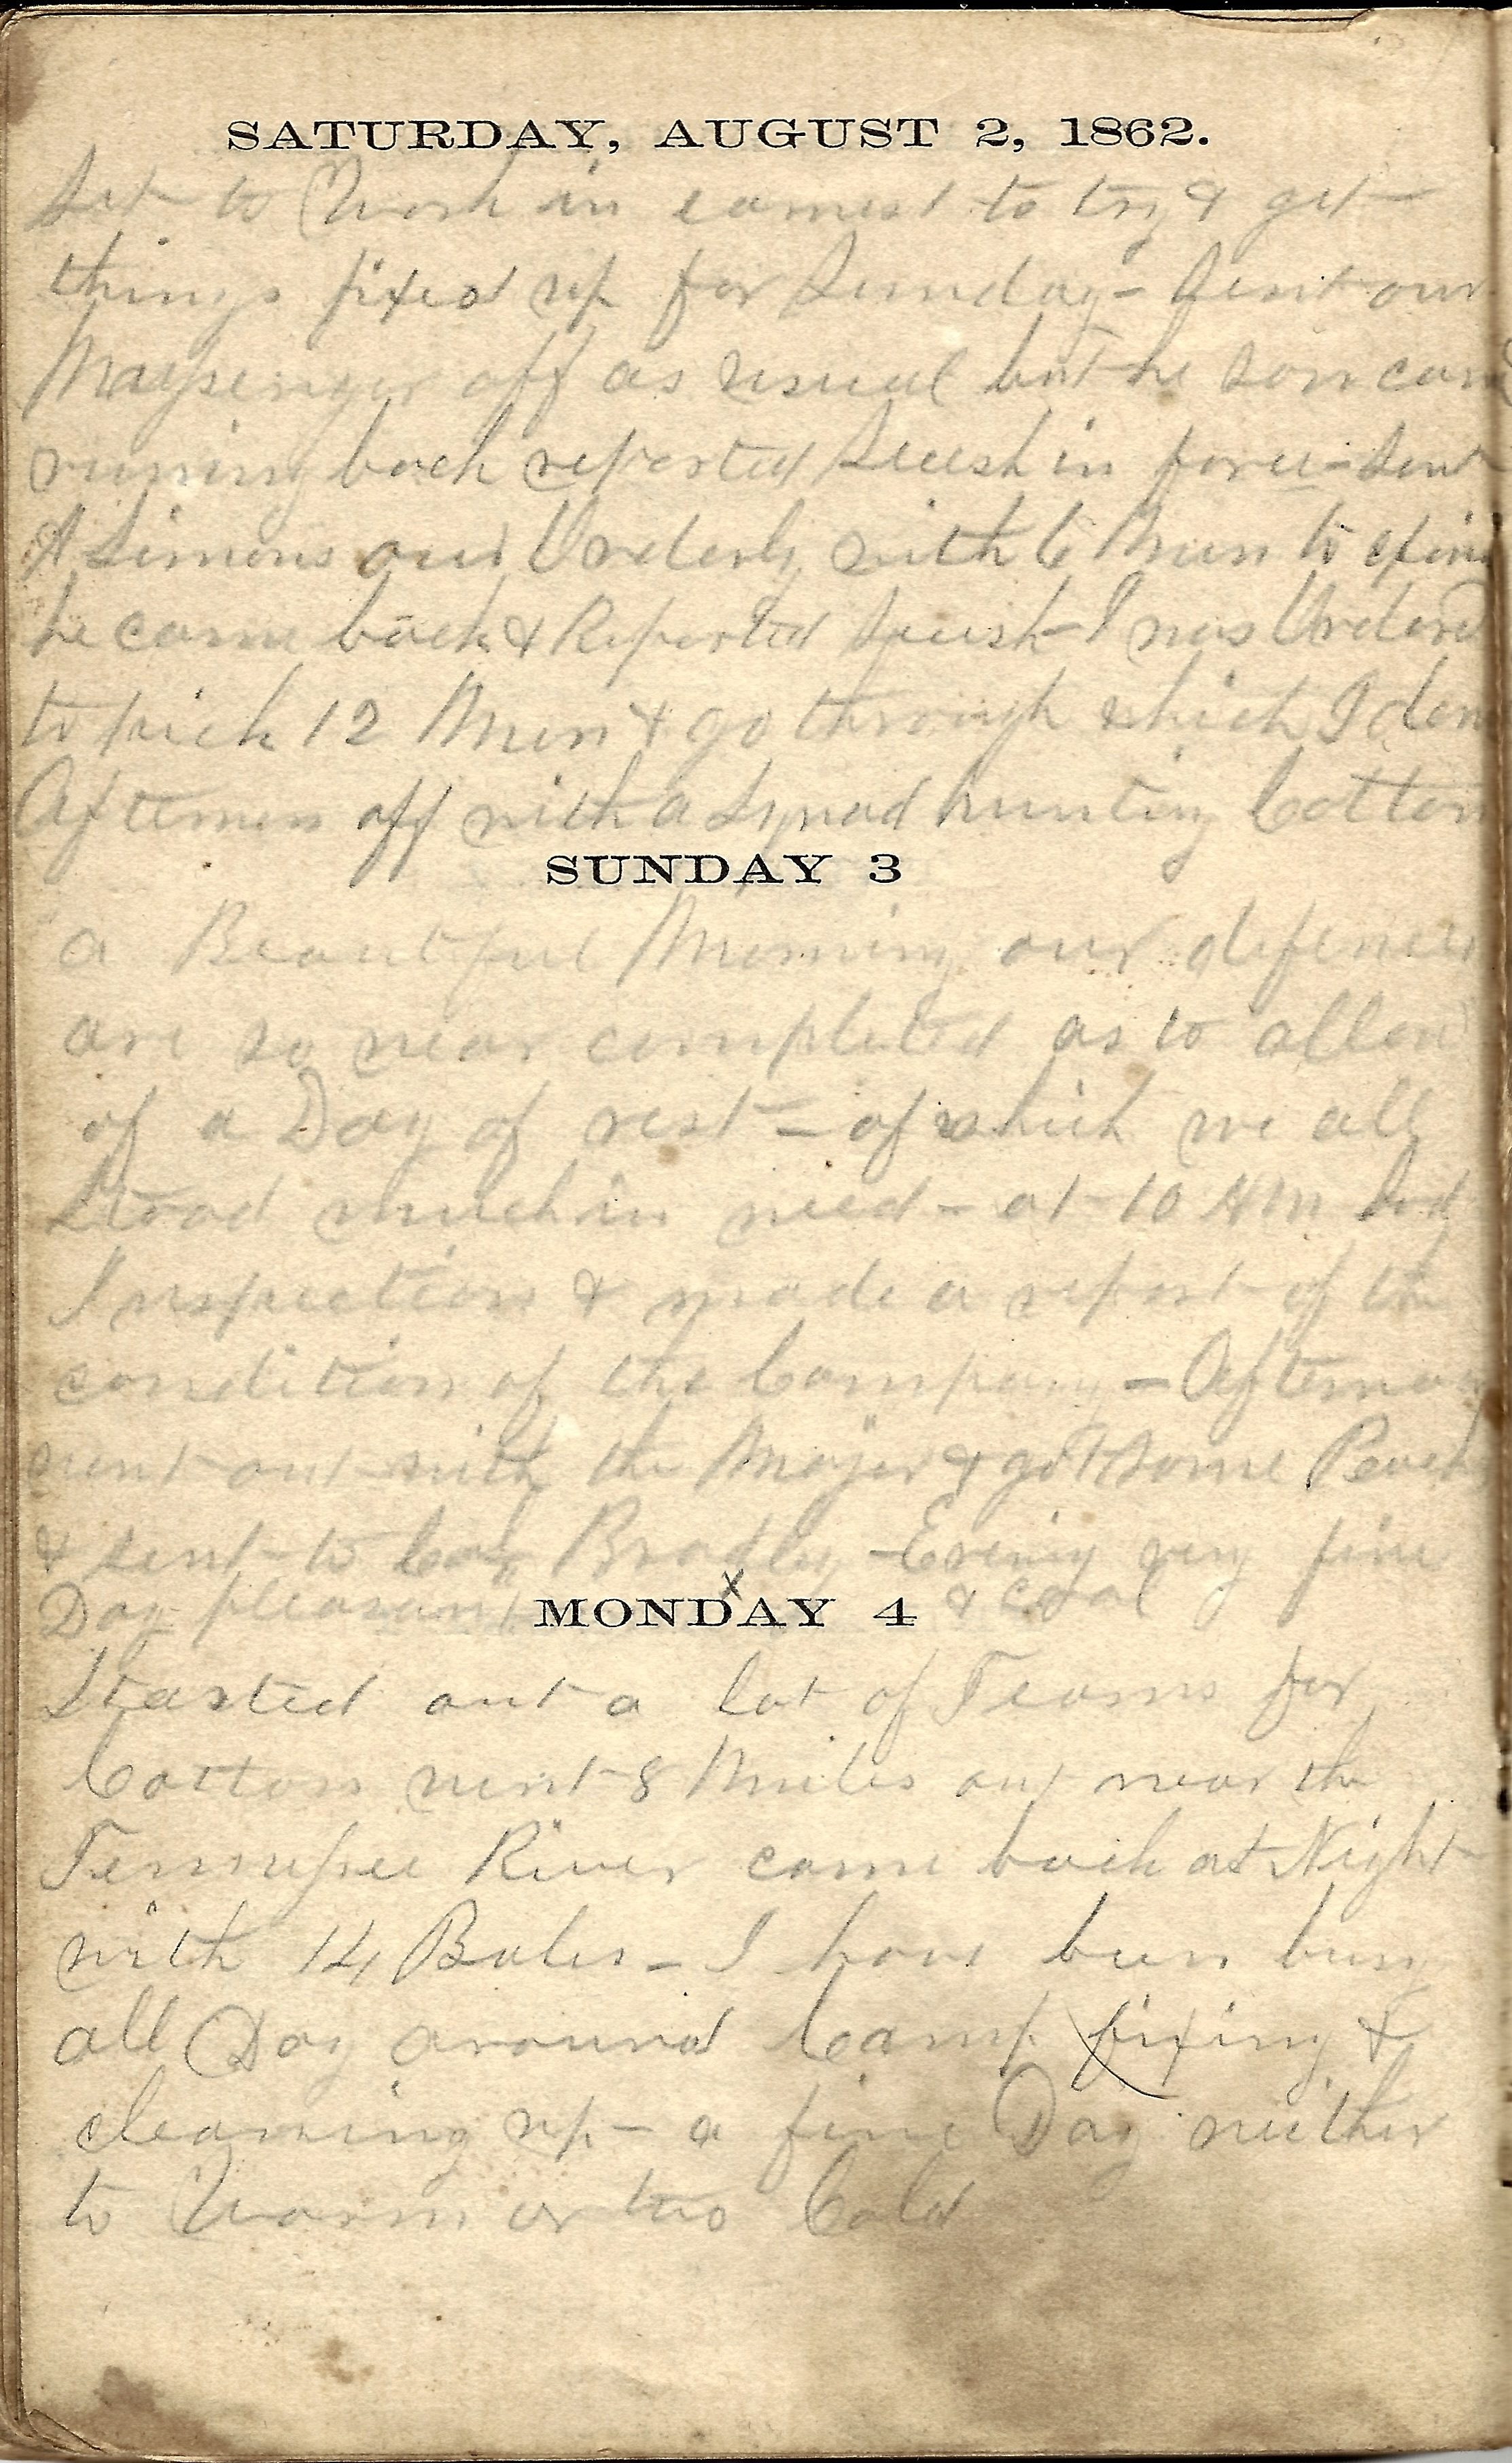 SATURDAY, AUGUST 2, 1862.
Set to Work in earnest to try & get
things fixed up for Sunday – Sent our
off as usual but he soon came
runing back reported Secesh in force – Sent
Simons our Orderly with 6 Men to
he came back & Reported Secesh – I was Ordered
to pick 12 Men & go through which I done
Afternoon off with a Squad hunting Cotton
SUNDAY 3
a Beautiful Morning our defences
are so near completed as to allow
of a Day of rest – of which we all
Stood much in need – at 10 AM had
Inspection & made a report of the
condition of the Company – Afternoon
went out with the Major & got some Peaches
& sent to Bradley – Evening very fine
Day pleasant & cool
x
MONDAY 4
Started out a lot of Teams for
Cotton went 8 Miles out near the
Tennessee River came back at Night
with 14 Bales – I have been busy
all Day around Camp fixing &
cleaning up – a fine Day neither
to Warm or two Cold